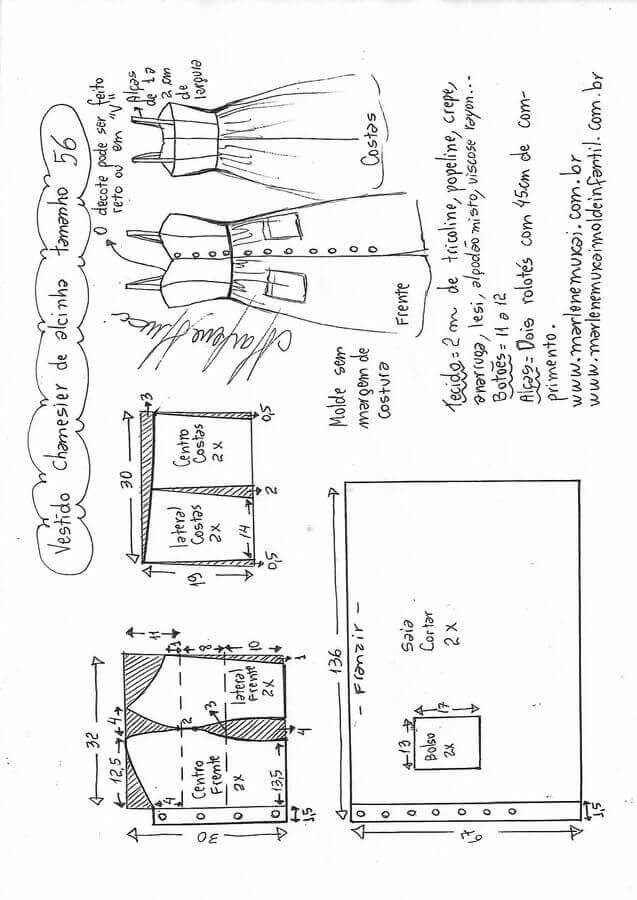 Vestido Chamesier de alcinha tamanho 56
O decote pode ser feito
reto ou em "V"
Alças
de 1 a
2 cm
de
largura
Costas
Frente
Marlene Mukai
Molde sem
margem de
costura
Tecido = 2 m de tricoline, popeline, crepe,
anarruga, lesi, algodão misto, viscose rayon...
Botões = 11 a 12
Alças = Dois rolotês com 45cm de com-
primento.
www.marlenemukai.com.br
www.marlenemukaimoldeinfantil.com.br
30
3
19
Lateral
Costas
2x
Centro
Costas
2x
0,5
14
2
0,5
32
12,5
4
11
3
8
10
4
2
3
Centro
Frente
2x
Lateral
Frente
2x
13,5
4
1
30
1,5
136
- Franzir -
Saia
Cortar
2x
17
13
Bolso
2x
67
1,5